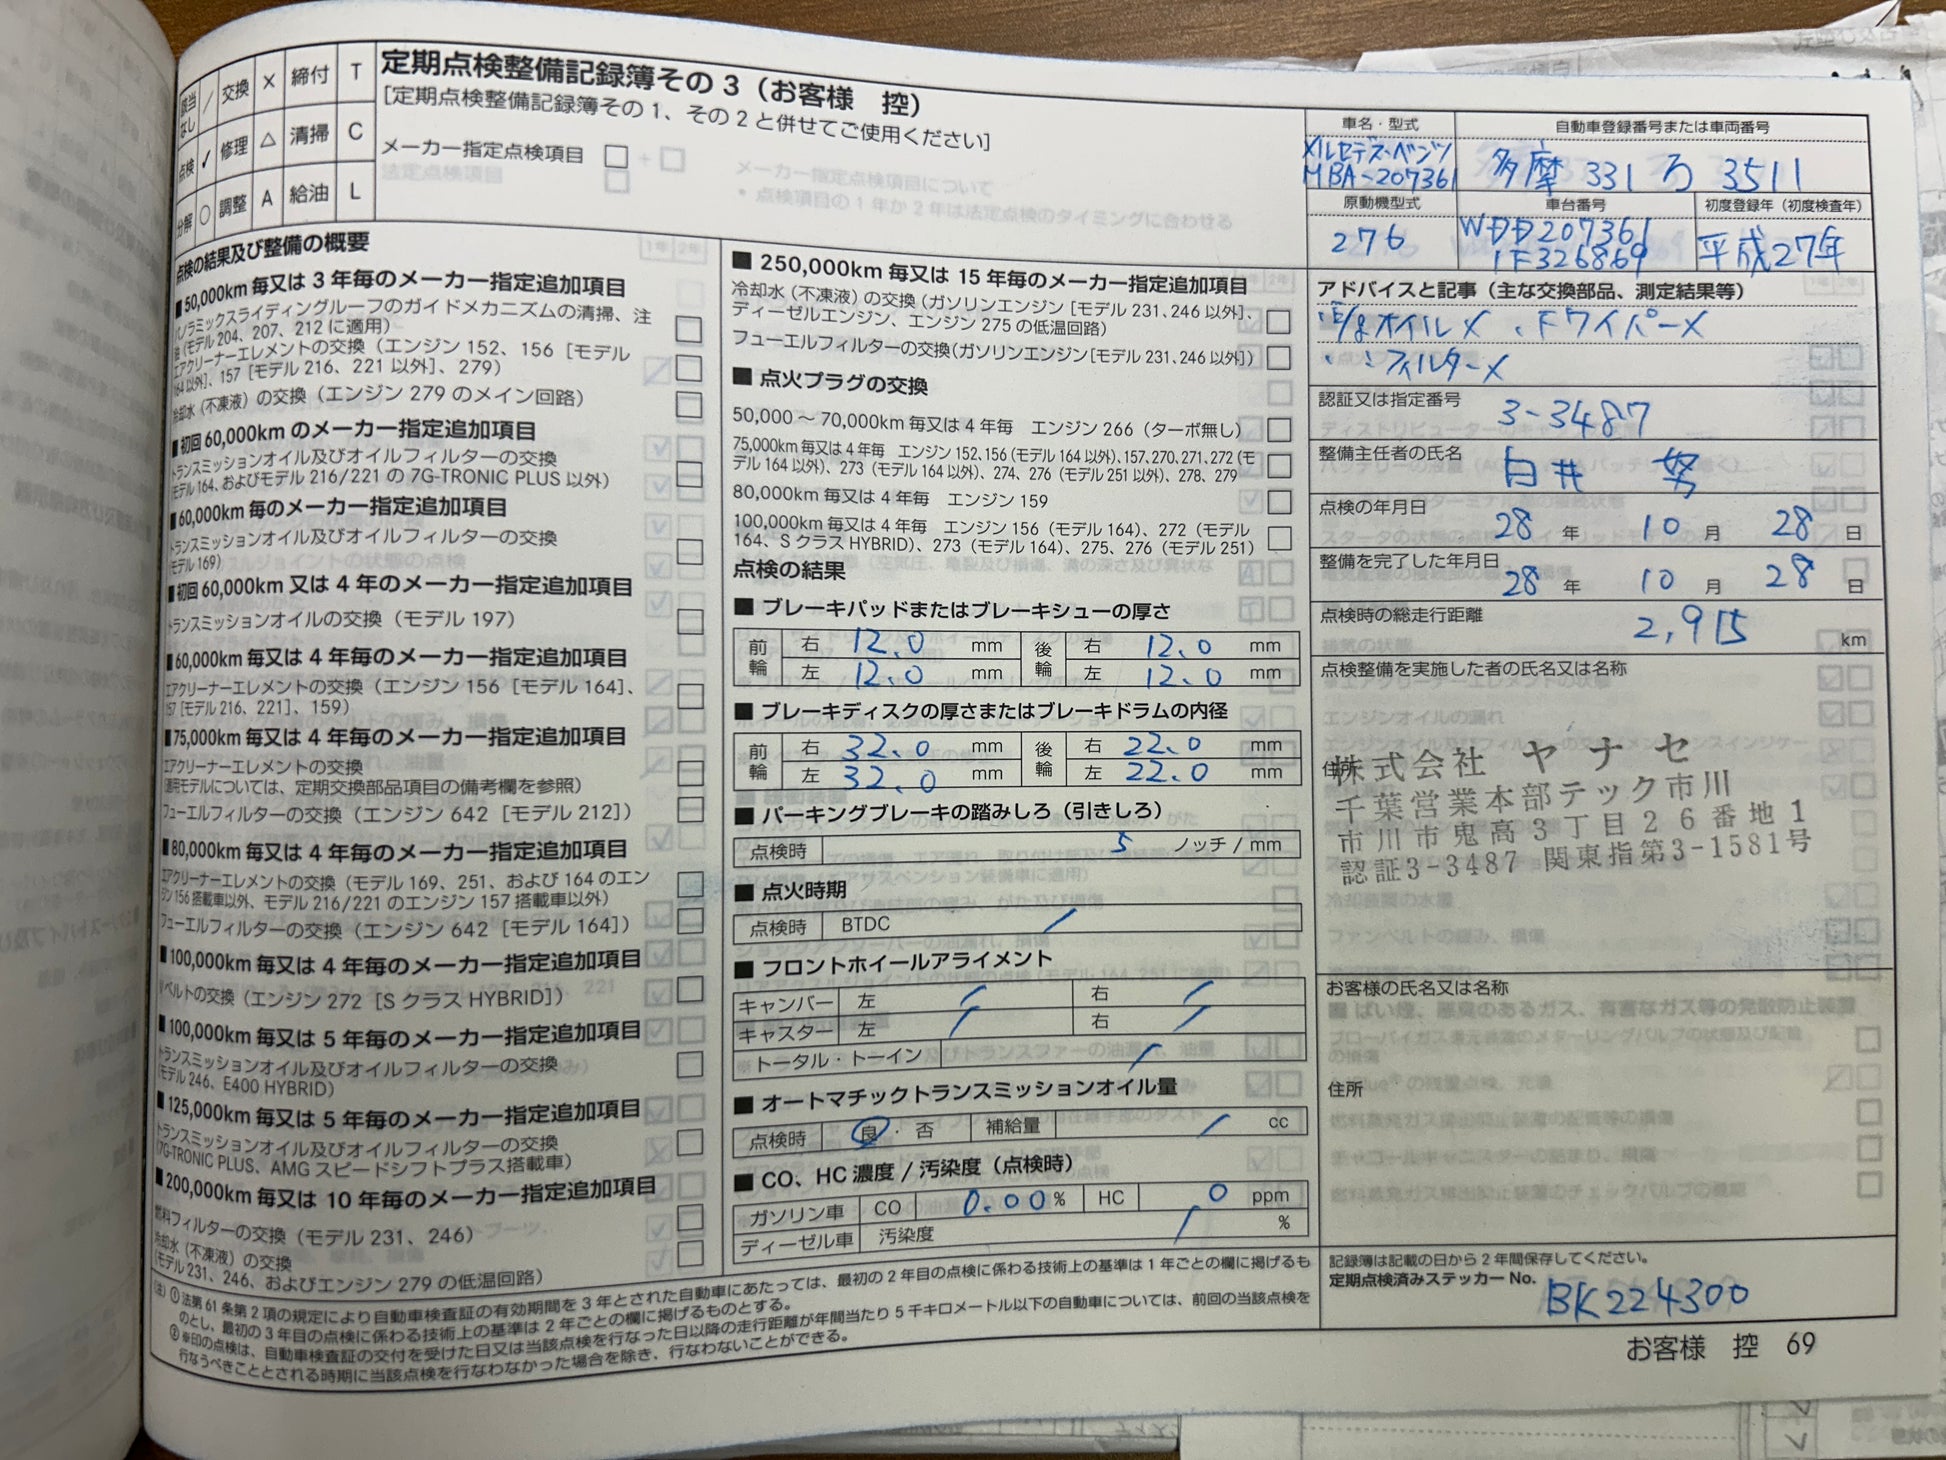 該当なし / 交換 × 締付 T
点検 ✓ 修理 △ 清掃 C
分解 ○ 調整 A 給油 L
定期点検整備記録簿その3（お客様 控）
［定期点検整備記録簿その1、その2と併せてご使用ください］
メーカー指定点検項目 □
点検の結果及び整備の概要
■50,000km 毎又は 3 年毎のメーカー指定追加項目
パノラミックスライディングルーフのガイドメカニズムの清掃、注
油（モデル 204、207、212 に適用）
エアクリーナーエレメントの交換（エンジン 152、156［モデル
164 以外］、157［モデル 216、221 以外］、279）
冷却水（不凍液）の交換（エンジン 279 のメイン回路）
■初回 60,000km のメーカー指定追加項目
トランスミッションオイル及びオイルフィルターの交換
（モデル 164、およびモデル 216/221 の 7G-TRONIC PLUS 以外）
■60,000km 毎のメーカー指定追加項目
トランスミッションオイル及びオイルフィルターの交換
（モデル 169）
■初回 60,000km 又は 4 年のメーカー指定追加項目
トランスミッションオイルの交換（モデル 197）
■60,000km 毎又は 4 年毎のメーカー指定追加項目
エアクリーナーエレメントの交換（エンジン 156［モデル 164］、
157［モデル 216、221］、159）
■75,000km 毎又は 4 年毎のメーカー指定追加項目
エアクリーナーエレメントの交換
（適用モデルについては、定期交換部品項目の備考欄を参照）
フューエルフィルターの交換（エンジン 642［モデル 212］）
■80,000km 毎又は 4 年毎のメーカー指定追加項目
エアクリーナーエレメントの交換（モデル 169、251、および 164 のエン
ジン 156 搭載車以外、モデル 216/221 のエンジン 157 搭載車以外）
フューエルフィルターの交換（エンジン 642［モデル 164］）
■100,000km 毎又は 4 年毎のメーカー指定追加項目
Vベルトの交換（エンジン 272［S クラス HYBRID］）
■100,000km 毎又は 5 年毎のメーカー指定追加項目
トランスミッションオイル及びオイルフィルターの交換
（モデル 246、E400 HYBRID）
■125,000km 毎又は 5 年毎のメーカー指定追加項目
トランスミッションオイル及びオイルフィルターの交換
（7G-TRONIC PLUS、AMG スピードシフトプラス搭載車）
■200,000km 毎又は 10 年毎のメーカー指定追加項目
燃料フィルターの交換（モデル 231、246）
冷却水（不凍液）の交換
（モデル 231、246、およびエンジン 279 の低温回路）
■ 250,000km 毎又は 15 年毎のメーカー指定追加項目
冷却水（不凍液）の交換（ガソリンエンジン［モデル 231、246 以外］、
ディーゼルエンジン、エンジン 275 の低温回路）
フューエルフィルターの交換（ガソリンエンジン［モデル 231、246 以外］）
■ 点火プラグの交換
50,000 ～ 70,000km 毎又は 4 年毎 エンジン 266（ターボ無し）
75,000km 毎又は 4 年毎 エンジン 152、156（モデル 164 以外）、157、270、271、272（モ
デル 164 以外）、273（モデル 164 以外）、274、276（モデル 251 以外）、278、279
80,000km 毎又は 4 年毎 エンジン 159
100,000km 毎又は 4 年毎 エンジン 156（モデル 164）、272（モデル
164、S クラス HYBRID）、273（モデル 164）、275、276（モデル 251）
点検の結果
■ ブレーキパッドまたはブレーキシューの厚さ
前輪 右 12.0 mm 後輪 右 12.0 mm
左 12.0 mm 左 12.0 mm
■ ブレーキディスクの厚さまたはブレーキドラムの内径
前輪 右 32.0 mm 後輪 右 22.0 mm
左 32.0 mm 左 22.0 mm
■ パーキングブレーキの踏みしろ（引きしろ）
点検時 5 ノッチ / mm
■ 点火時期
点検時 BTDC /
■ フロントホイールアライメント
キャンバー 左 / 右 /
キャスター 左 / 右 /
トータル・トーイン /
■ オートマチックトランスミッションオイル量
点検時 良 ・ 否 補給量 / cc
■ CO、HC 濃度 / 汚染度（点検時）
ガソリン車 CO 0.00 % HC 0 ppm
ディーゼル車 汚染度 / %
車名・型式 自動車登録番号または車両番号
メルセデス・ベンツ
MBA-207361
多摩 331 ろ 3511
原動機型式 車台番号 初度登録年（初度検査年）
276
WDD207361
1F326869
平成27年
アドバイスと記事（主な交換部品、測定結果等）
オイル× ・Fワイパー×
・ フィルター×
認証又は指定番号 3-3487
整備主任者の氏名 白井 努
点検の年月日 28 年 10 月 28 日
整備を完了した年月日 28 年 10 月 28 日
点検時の総走行距離 2,915 km
点検整備を実施した者の氏名又は名称
住所
株式会社 ヤナセ
千葉営業本部テック市川
市川市鬼高３丁目２６番地１
認証3-3487 関東指第3-1581号
お客様の氏名又は名称
住所
記録簿は記載の日から 2 年間保存してください。
定期点検済みステッカー No. BK224300
（注）① 法第 61 条第 2 項の規定により自動車検査証の有効期間を 3 年とされた自動車にあたっては、最初の 2 年目の点検に係わる技術上の基準は 1 年ごとの欄に掲げるも
のとし、最初の 3 年目の点検に係わる技術上の基準は 2 年ごとの欄に掲げるものとする。
② ※印の点検は、自動車検査証の交付を受けた日又は当該点検を行なった日以降の走行距離が年間当たり 5 千キロメートル以下の自動車については、前回の当該点検を
行なうべきこととされる時期に当該点検を行なわなかった場合を除き、行なわないことができる。
お客様 控 69